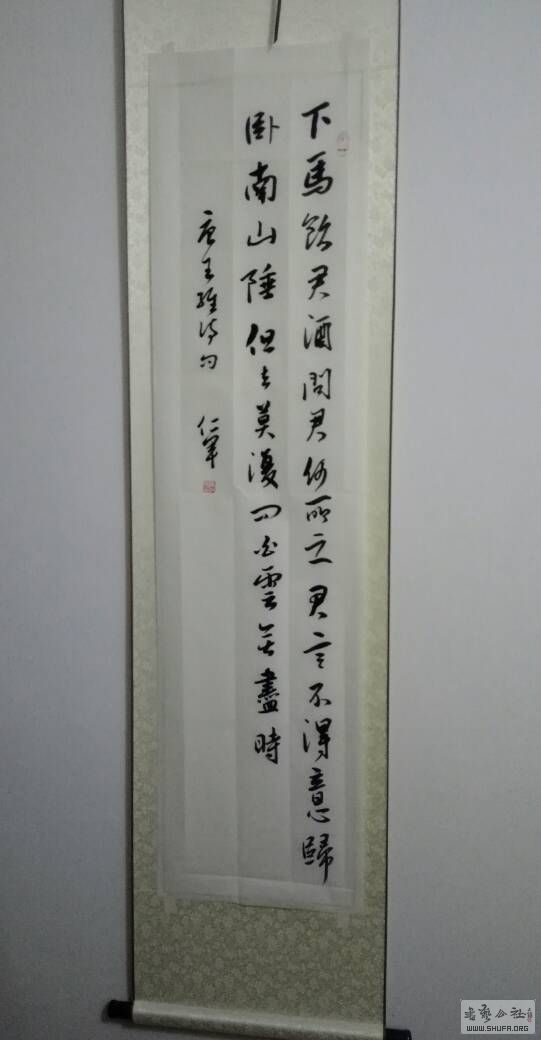 下馬飲君酒問君何所之君言不得意歸
卧南山陲但去莫復問白雲無盡時
唐王維詩句 仁軍
書藝公社
WWW.SHUFA.ORG